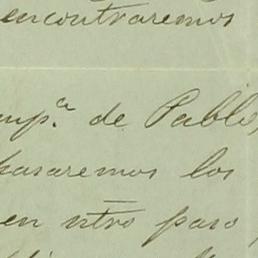 encontraremos
comp.ª de Pablo,
pasaremos los
en ntro paso,